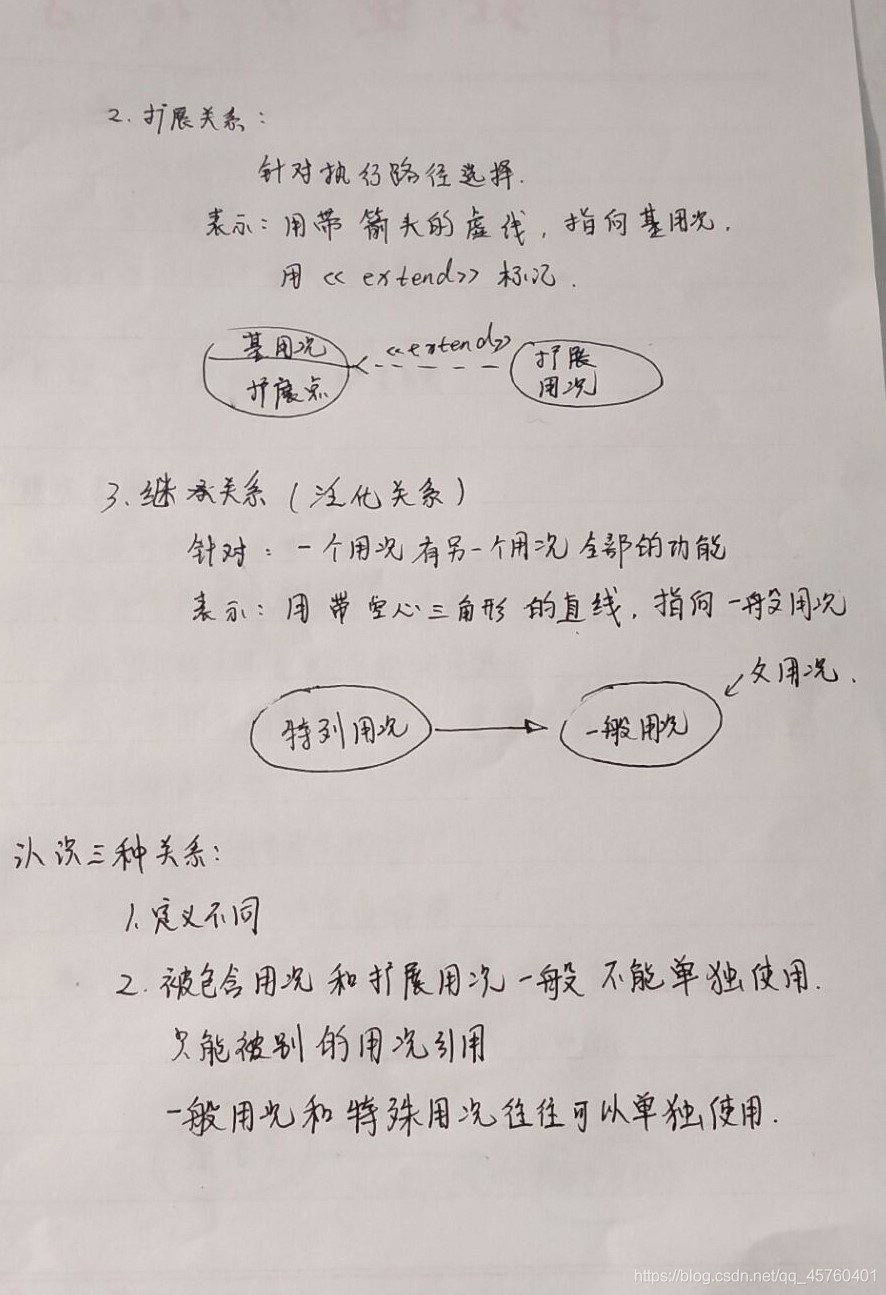 2. 扩展关系:
针对执行路径选择.
表示: 用带箭头的虚线, 指向基用况.
用 << extend>> 标记.
基用况
扩展点
<<extend>>
扩展
用况
3. 继承关系 (泛化关系)
针对: 一个用况有另一个用况全部的功能
表示: 用带空心三角形的直线, 指向一般用况
父用况.
特列用况
一般用况
认识三种关系:
1. 定义不同
2. 被包含用况和扩展用况一般不能单独使用.
只能被别的用况引用
一般用况和特殊用况往往可以单独使用.
https://blog.csdn.net/qq_45760401